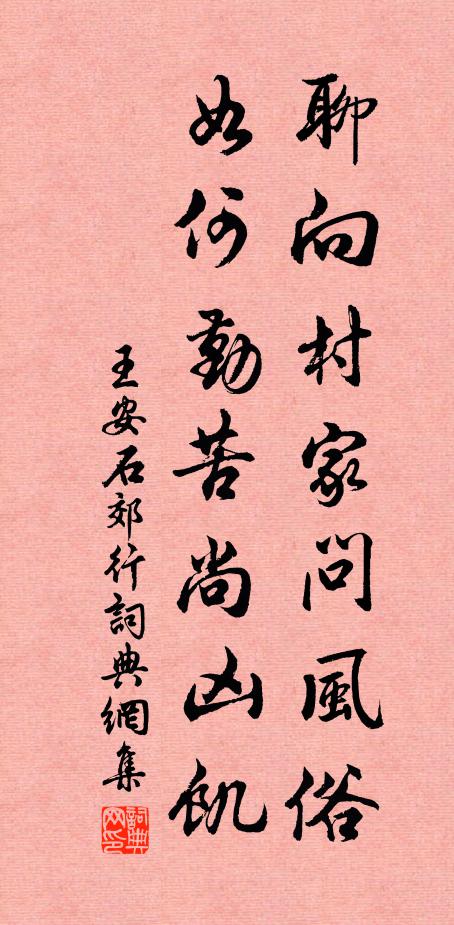 聊向村家問風俗
如何勤苦尚凶飢
王安石郊行詞典網集
詞典网印